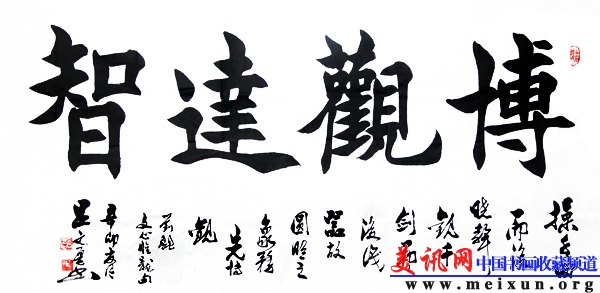 博觀達智
操千曲
而後
曉聲
觀千
劍而
後識
器故
圓照之
象務
先博
觀
文心雕龍句
辛卯
美讯网 中国书画收藏频道
www.meixun.org